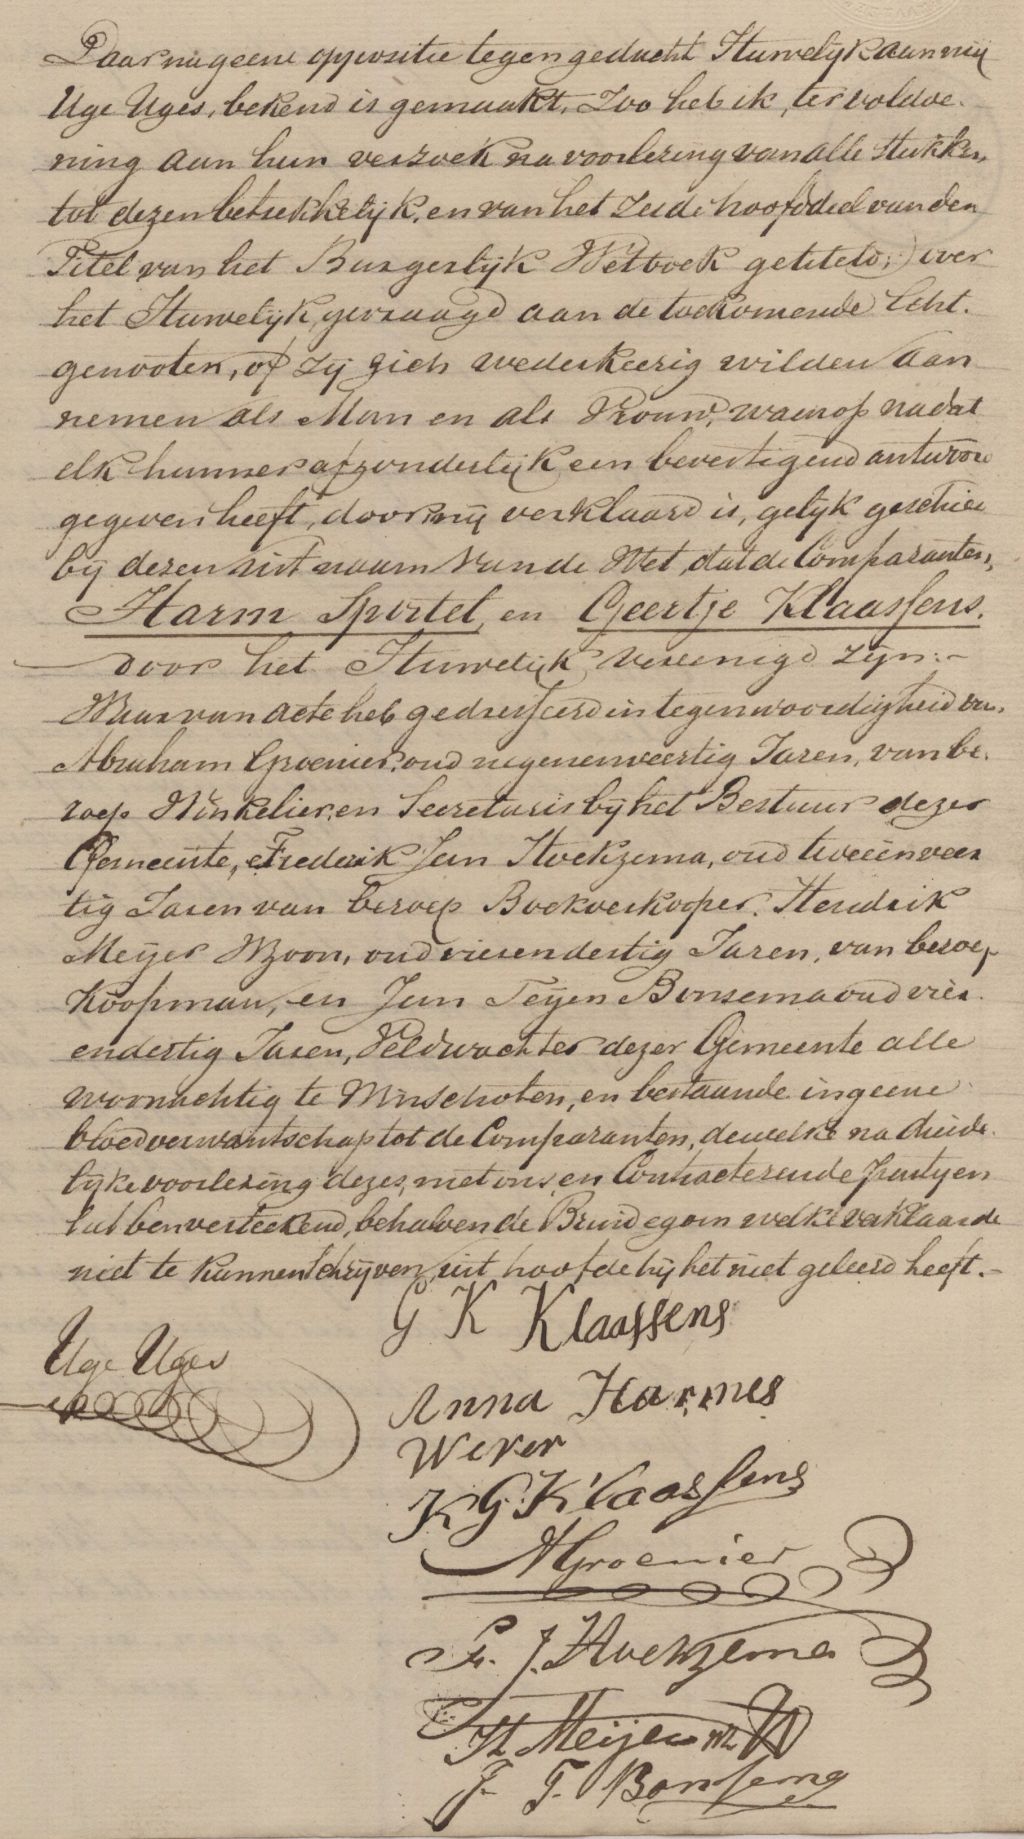 Daar nu geene oppositie tegen gedacht Huwelijk aan mij
Uge Uges, bekend is gemaakt, Zoo heb ik, ter voldoe-
ning aan hun verzoek na voorlezing van alle stukken
tot dezen betrekkelijk, en van het zesde hoofddeel van den
Titel van het Burgerlijk Wetboek getiteld: over
het Huwelijk, gevraagd aan de toekomende Echt-
genooten, of zij zich wederkeerig wilden aan
nemen als Man en als Vrouw, waarop nadat
elk hunner afzonderlijk een bevestigend antwoord
gegeven heeft, door mij verklaard is, gelijk geschied
bij dezen uit naam van de Wet, dat de Comparanten,
Harm Sportel, en Geertje Klaassens.
door het Huwelijk vereenigd zijn:-
Waarvan acte heb gedresseerd in tegenwoordigheid van
Abraham Groenier, oud negenenveertig Jaren, van be-
roep Winkelier, en Secretaris bij het Bestuur dezer
Gemeente, Frederik Jan Hoekzema, oud tweeënveer
tig Jaren van beroep Boekverkooper, Hendrik
Meijer Wzoon, oud vierendertig Jaren, van beroep
Koopman, en Jan Teijen Bonsema oud vier-
endertig Jaren, Veldwachter dezer Gemeente alle
woonachtig te Winschoten, en bestaande in geene
bloedverwantschap tot de Comparanten, dewelke na duide-
lijke voorlezing dezes, met ons, en Contracterende partijen
hebben verteekend, behalven de Bruidegom welke verklaarde
niet te kunnen schrijven, uit hoofde hij het niet geleerd heeft.-
G K Klaassens
Uge Uges
Anna Harmes
Wever
K G Klaassens
A Groenier
F. J. Hoekzema
H Meijer Wz
J. T. Bonsema